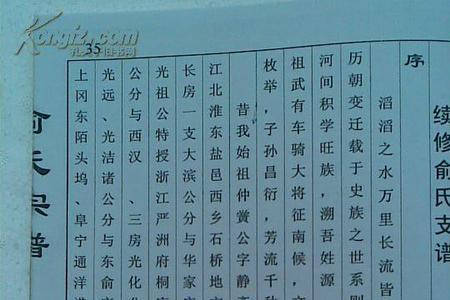 Kongfz.com
孔夫子旧书网
35
续修俞氏支谱
序
滔滔之水万里长流皆
历朝变迁载于史族之世系则
河间积学旺族，溯吾姓源
祖武有车骑大将征南候，
枚举，子孙昌衍，芳流千秋
昔我始祖仲簧公字静
江北淮东盐邑西乡石桥地
长房一支大滨公分与华家
光祖公特授浙江严洲府桐
公分与西汉、三房光化
光远、光洁诸公分与东俞
上冈东陌头坞、阜宁通洋港
俞氏宗谱